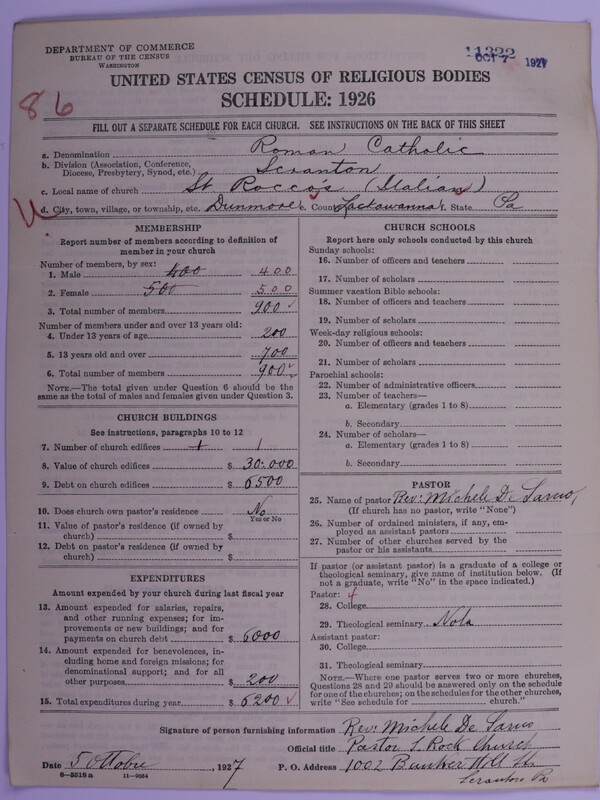 DEPARTMENT OF COMMERCE
BUREAU OF THE CENSUS
WASHINGTON
11322
OCT 7 1927
86
UNITED STATES CENSUS OF RELIGIOUS BODIES
SCHEDULE: 1926
FILL OUT A SEPARATE SCHEDULE FOR EACH CHURCH. SEE INSTRUCTIONS ON THE BACK OF THIS SHEET
a. Denomination Roman Catholic
b. Division (Association, Conference, Diocese, Presbytery, Synod, etc.) Scranton
c. Local name of church St Rocco's (Italian)
d. City, town, village, or township, etc. Dunmore e. County Lackawanna f. State Pa
MEMBERSHIP
Report number of members according to definition of
member in your church
Number of members, by sex:
1. Male 400 400
2. Female 500 500
3. Total number of members 900
Number of members under and over 13 years old:
4. Under 13 years of age 200
5. 13 years old and over 700
6. Total number of members 900
NOTE.—The total given under Question 6 should be
same as the total of males and females given under Question 3.
CHURCH BUILDINGS
See instructions, paragraphs 10 to 12
7. Number of church edifices 1 1
8. Value of church edifices $ 30.000
9. Debt on church edifices $ 6500
10. Does church own pastor's residence No
Yes or No
11. Value of pastor's residence (if owned by
church) $
12. Debt on pastor's residence (if owned by
church) $
EXPENDITURES
Amount expended by your church during last fiscal year
13. Amount expended for salaries, repairs,
and other running expenses; for im-
provements or new buildings; and for
payments on church debt $ 6000
14. Amount expended for benevolences, in-
cluding home and foreign missions; for
denominational support; and for all
other purposes $ 200
15. Total expenditures during year $ 6200
CHURCH SCHOOLS
Report here only schools conducted by this church
Sunday schools:
16. Number of officers and teachers
17. Number of scholars
Summer vacation Bible schools:
18. Number of officers and teachers
19. Number of scholars
Week-day religious schools:
20. Number of officers and teachers
21. Number of scholars
Parochial schools:
22. Number of administrative officers
23. Number of teachers—
a. Elementary (grades 1 to 8)
b. Secondary
24. Number of scholars—
a. Elementary (grades 1 to 8)
b. Secondary
PASTOR
25. Name of pastor Rev: Michele De Sarno
(If church has no pastor, write "None")
26. Number of ordained ministers, if any, em-
ployed as assistant pastors
27. Number of other churches served by the
pastor or his assistants
If pastor (or assistant pastor) is a graduate of a college or
theological seminary, give name of institution below. (If
not a graduate, write "No" in the space indicated.)
Pastor: 4
28. College
29. Theological seminary Nola
Assistant pastor:
30. College
31. Theological seminary
NOTE.—Where one pastor serves two or more churches,
Questions 28 and 29 should be answered only on the schedule
for one of the churches; on the schedules for the other churches,
write "See schedule for church."
Signature of person furnishing information Rev: Michele De Sarno
Official title Pastor S. Rock Church
Date 5 Ottobre, 1927 P. O. Address 1002 Bunker Hill St.
Scranton Pa
6—5518 a 11—9034